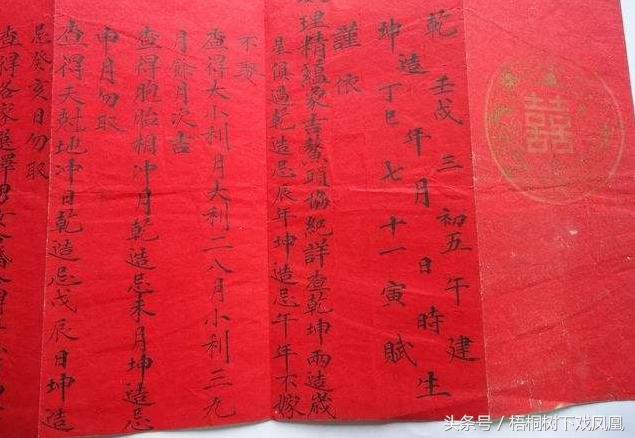 囍
乾 壬戌 三 初五 午 建
造 年 月 日 時 生
坤 丁巳 七 十一 寅 賦
謹依
理精蘊象吉鰲頭協紀詳查乾坤兩造歲
是俱過乾造忌辰年坤造忌午年不嫁
不娶
查得大小利月大利二八月小利三九
月餘月次吉
查得胞胎相沖月乾造忌未月坤造忌
申月勿取
查得天尅地沖日乾造忌戊辰日坤造
忌癸亥日勿取
查得各家選擇男女合婚
头条号 / 梧桐树下戏凤凰